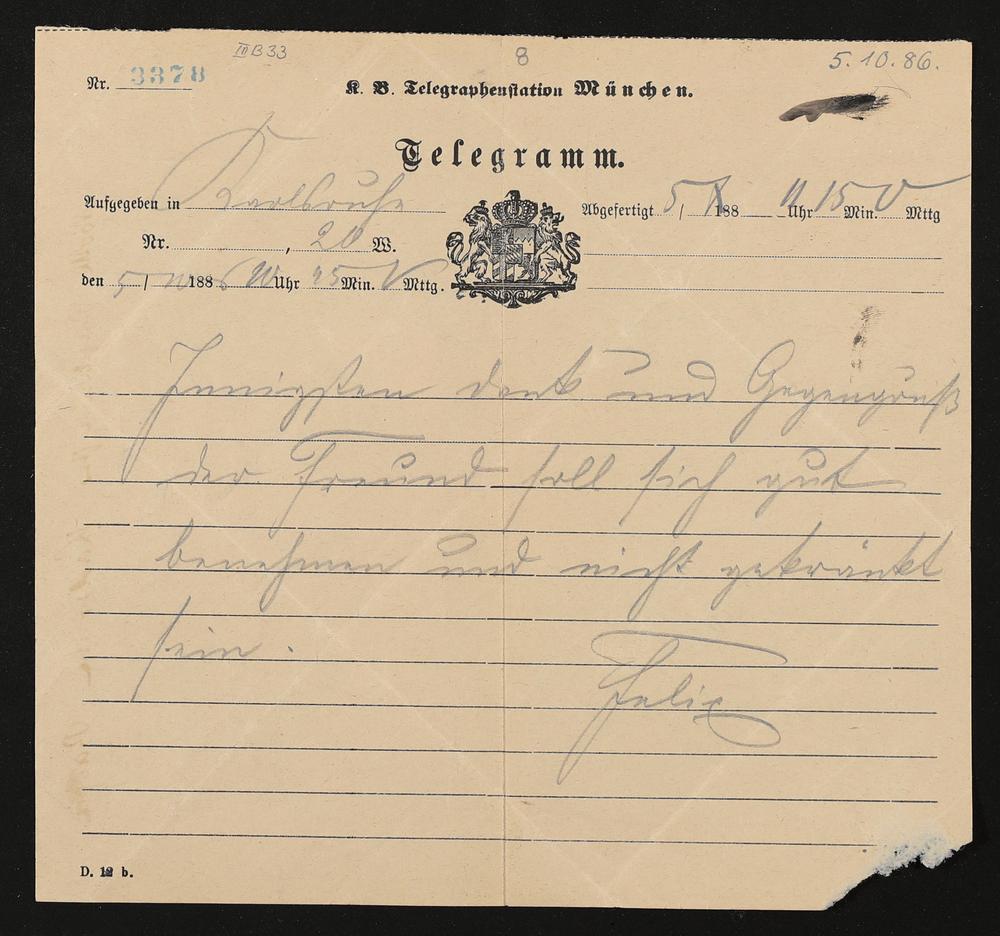 III B 33
8
5.10.86.
Nr. 3378
K. B. Telegraphenstation München.
Telegramm.
Aufgegeben in Karlsruhe
Abgefertigt 5/X 188 Uhr 15 Min. V Mttg
Nr. , 20 W.
den 5/ 1886 Uhr 45 Min. V Mttg.
Innigsten dank und Gegengruß
der Freund soll sich gut
benehmen und nicht gekränkt
sein.
Felix
D. 12 b.